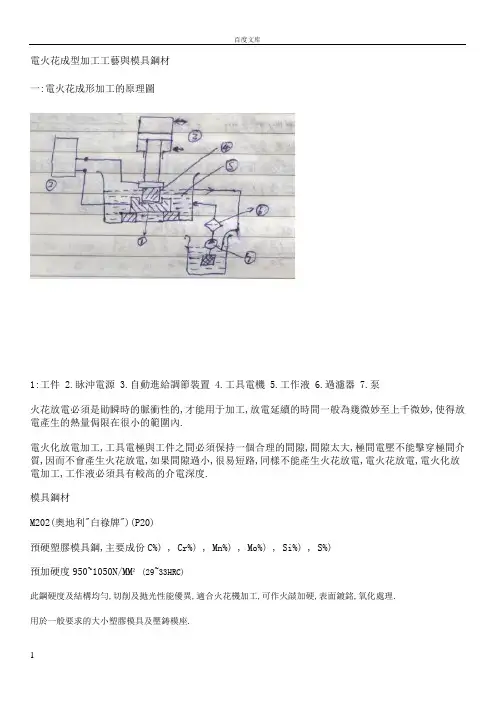 百度文库
電火花成型加工工藝與模具鋼材
一:電火花成形加工的原理圖
③
④
②
⑤
⑥
①
⑦
1:工件 2.脉沖電源 3.自動進給調節裝置 4.工具電機 5.工作液 6.過濾器 7.泵
火花放電必須是勛瞬時的脈衝性的,才能用于加工,放電延續的時間一般為幾微妙至上千微妙,使得放
電產生的熱量侷限在很小的範圍內.
電火化放電加工,工具電極與工件之間必須保持一個合理的間隙,間隙太大,極間電壓不能擊穿極間介
質,因而不會產生火花放電,如果間隙過小,很易短路,同樣不能產生火花放電,電火花放電,電火化放
電加工,工作液必須具有較高的介電深度.
模具鋼材
M202(奧地利"白祿牌")(P20)
預硬塑膠模具鋼,主要成份C%) , Cr%) , Mn%) , Mo%) , Si%) , S%)
預加硬度950~1050N/MM² (29~33HRC)
此鋼硬度及結構均勻,切削及拋光性能優異,適合火花機加工,可作火燄加硬,表面鍍銘,氧化處理.
用於一般要求的大小塑膠模具及壓鋳模座.
1